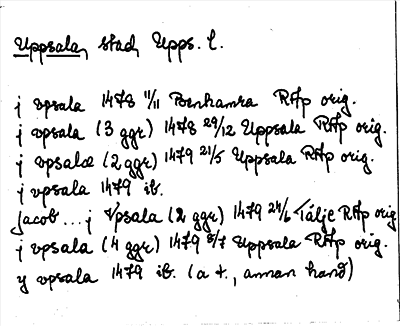 Uppsala, stad, Upps. l.
j vpsala 1478 11/11 Benhamra RAp orig.
j vpsala (3 ggr) 1478 29/12 Uppsala RAp orig.
j vpsalæ (2 ggr) 1479 21/5 Uppsala RAp orig.
j vpsala 1479 ib.
Jacob ... j Vpsala (2 ggr) 1479 24/6 Tälje RAp orig
j vpsala (4 ggr) 1479 5/7 Uppsala RAp orig.
y vpsala 1479 ib. (a t., annan hand)